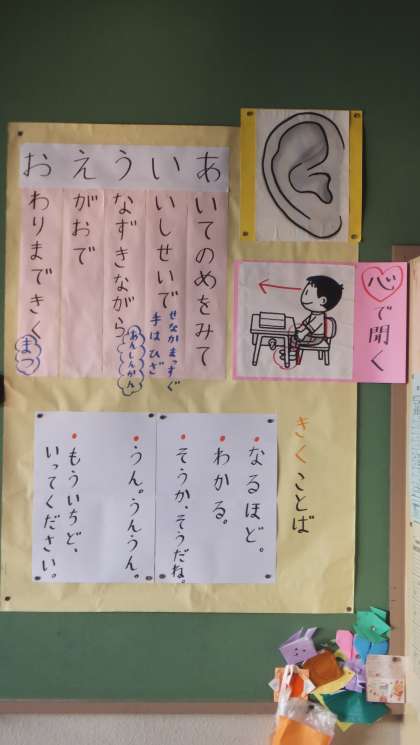 あいうえお
あいてのめをみて
いいしせいで
せなかまっすぐ
手はひざ
うなずきながら
あんしんかん
えがおで
おわりまできく
まつ
心で聞く
きくことば
なるほど。
わかる。
そうか、そうだね。
うん。うんうん。
もういちど、
いってください。